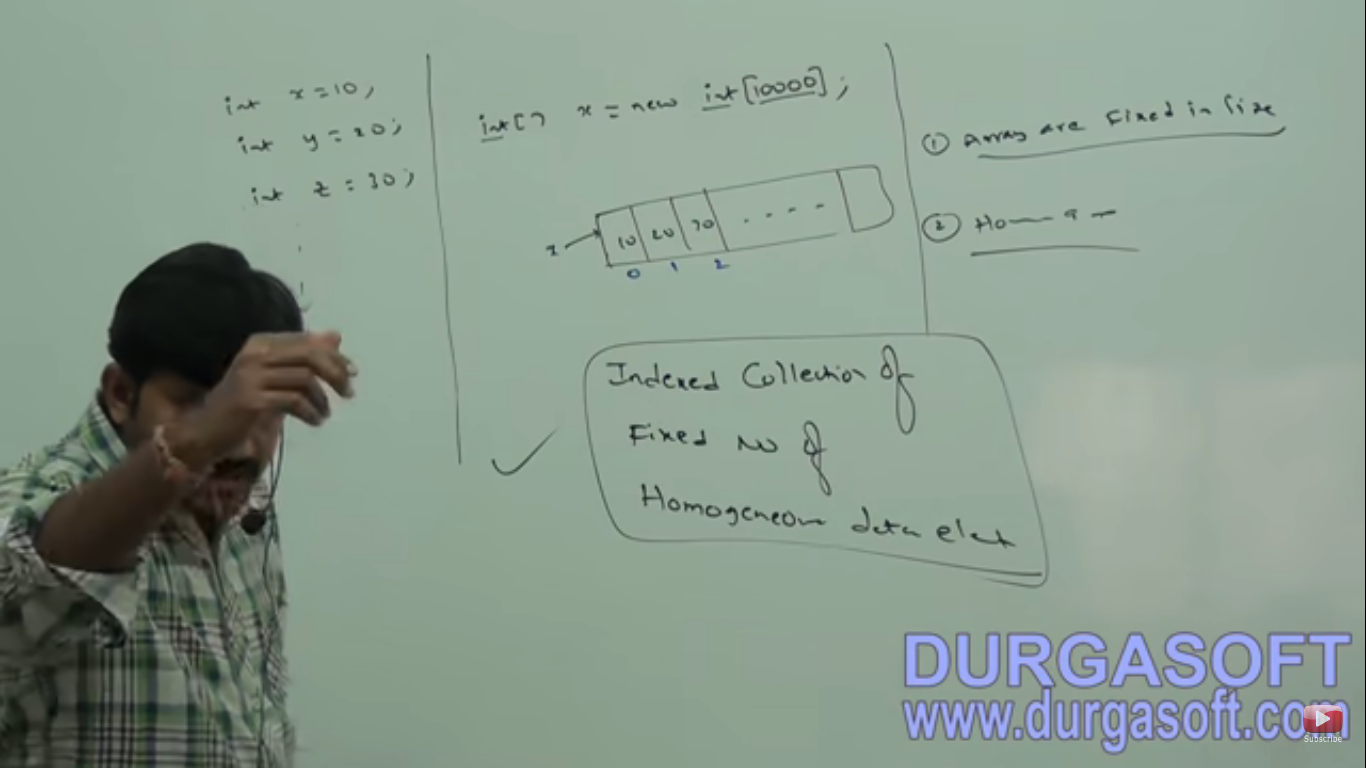 int x = 10;
int y = 20;
int z = 30;
int[] x = new int[10000];
x
10 20 30 - - - -
0 1 2
① Array are Fixed in Size
② Homo
Indexed Collection of
Fixed no of
Homogeneous data elet
DURGASOFT
www.durgasoft.com
Subscribe